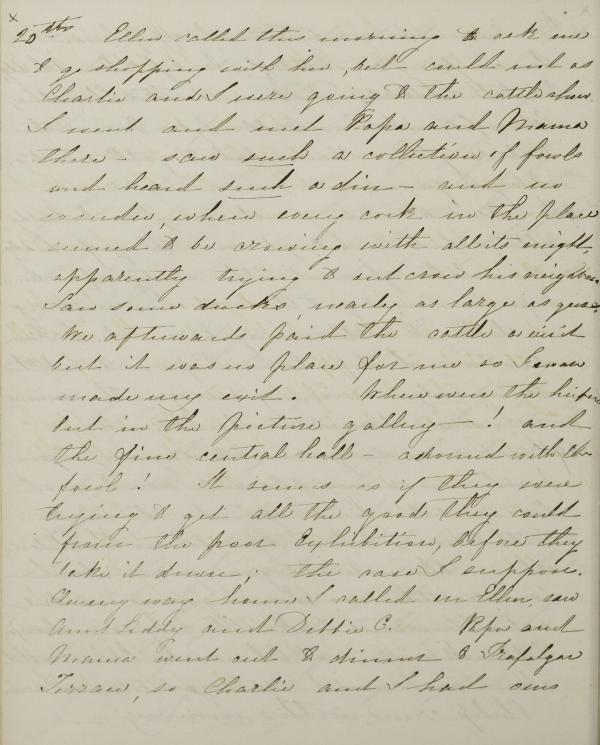 x
20th Ellen called this morning to ask me
to go shopping with her, but could not as
Charlie and I were going to the cattle show
I went and met Papa and Mama
there - saw such a collection of fowls
and heard such a din - and no
wonder, when every cock in the place
seemed to be crowing with all its might,
apparently trying to out crow his neighbour.
Saw some ducks, nearly as large as geese,
We afterwards paid the cattle a visit
but it was no place for me so I soon
made my exit. Where were the heifers
but in the picture gallery - ! and
the fine central hall - adorned with the
fowl! It seems as if they were
trying to get all the good they could
from the poor Exhibition, before they
take it down; the case I suppose.
On my way home I called on Ellen, saw
Aunt Liddy and Debbie C. Papa and
Mama went out to dinner to Trafalgar
Terrace, so Charlie and I had our